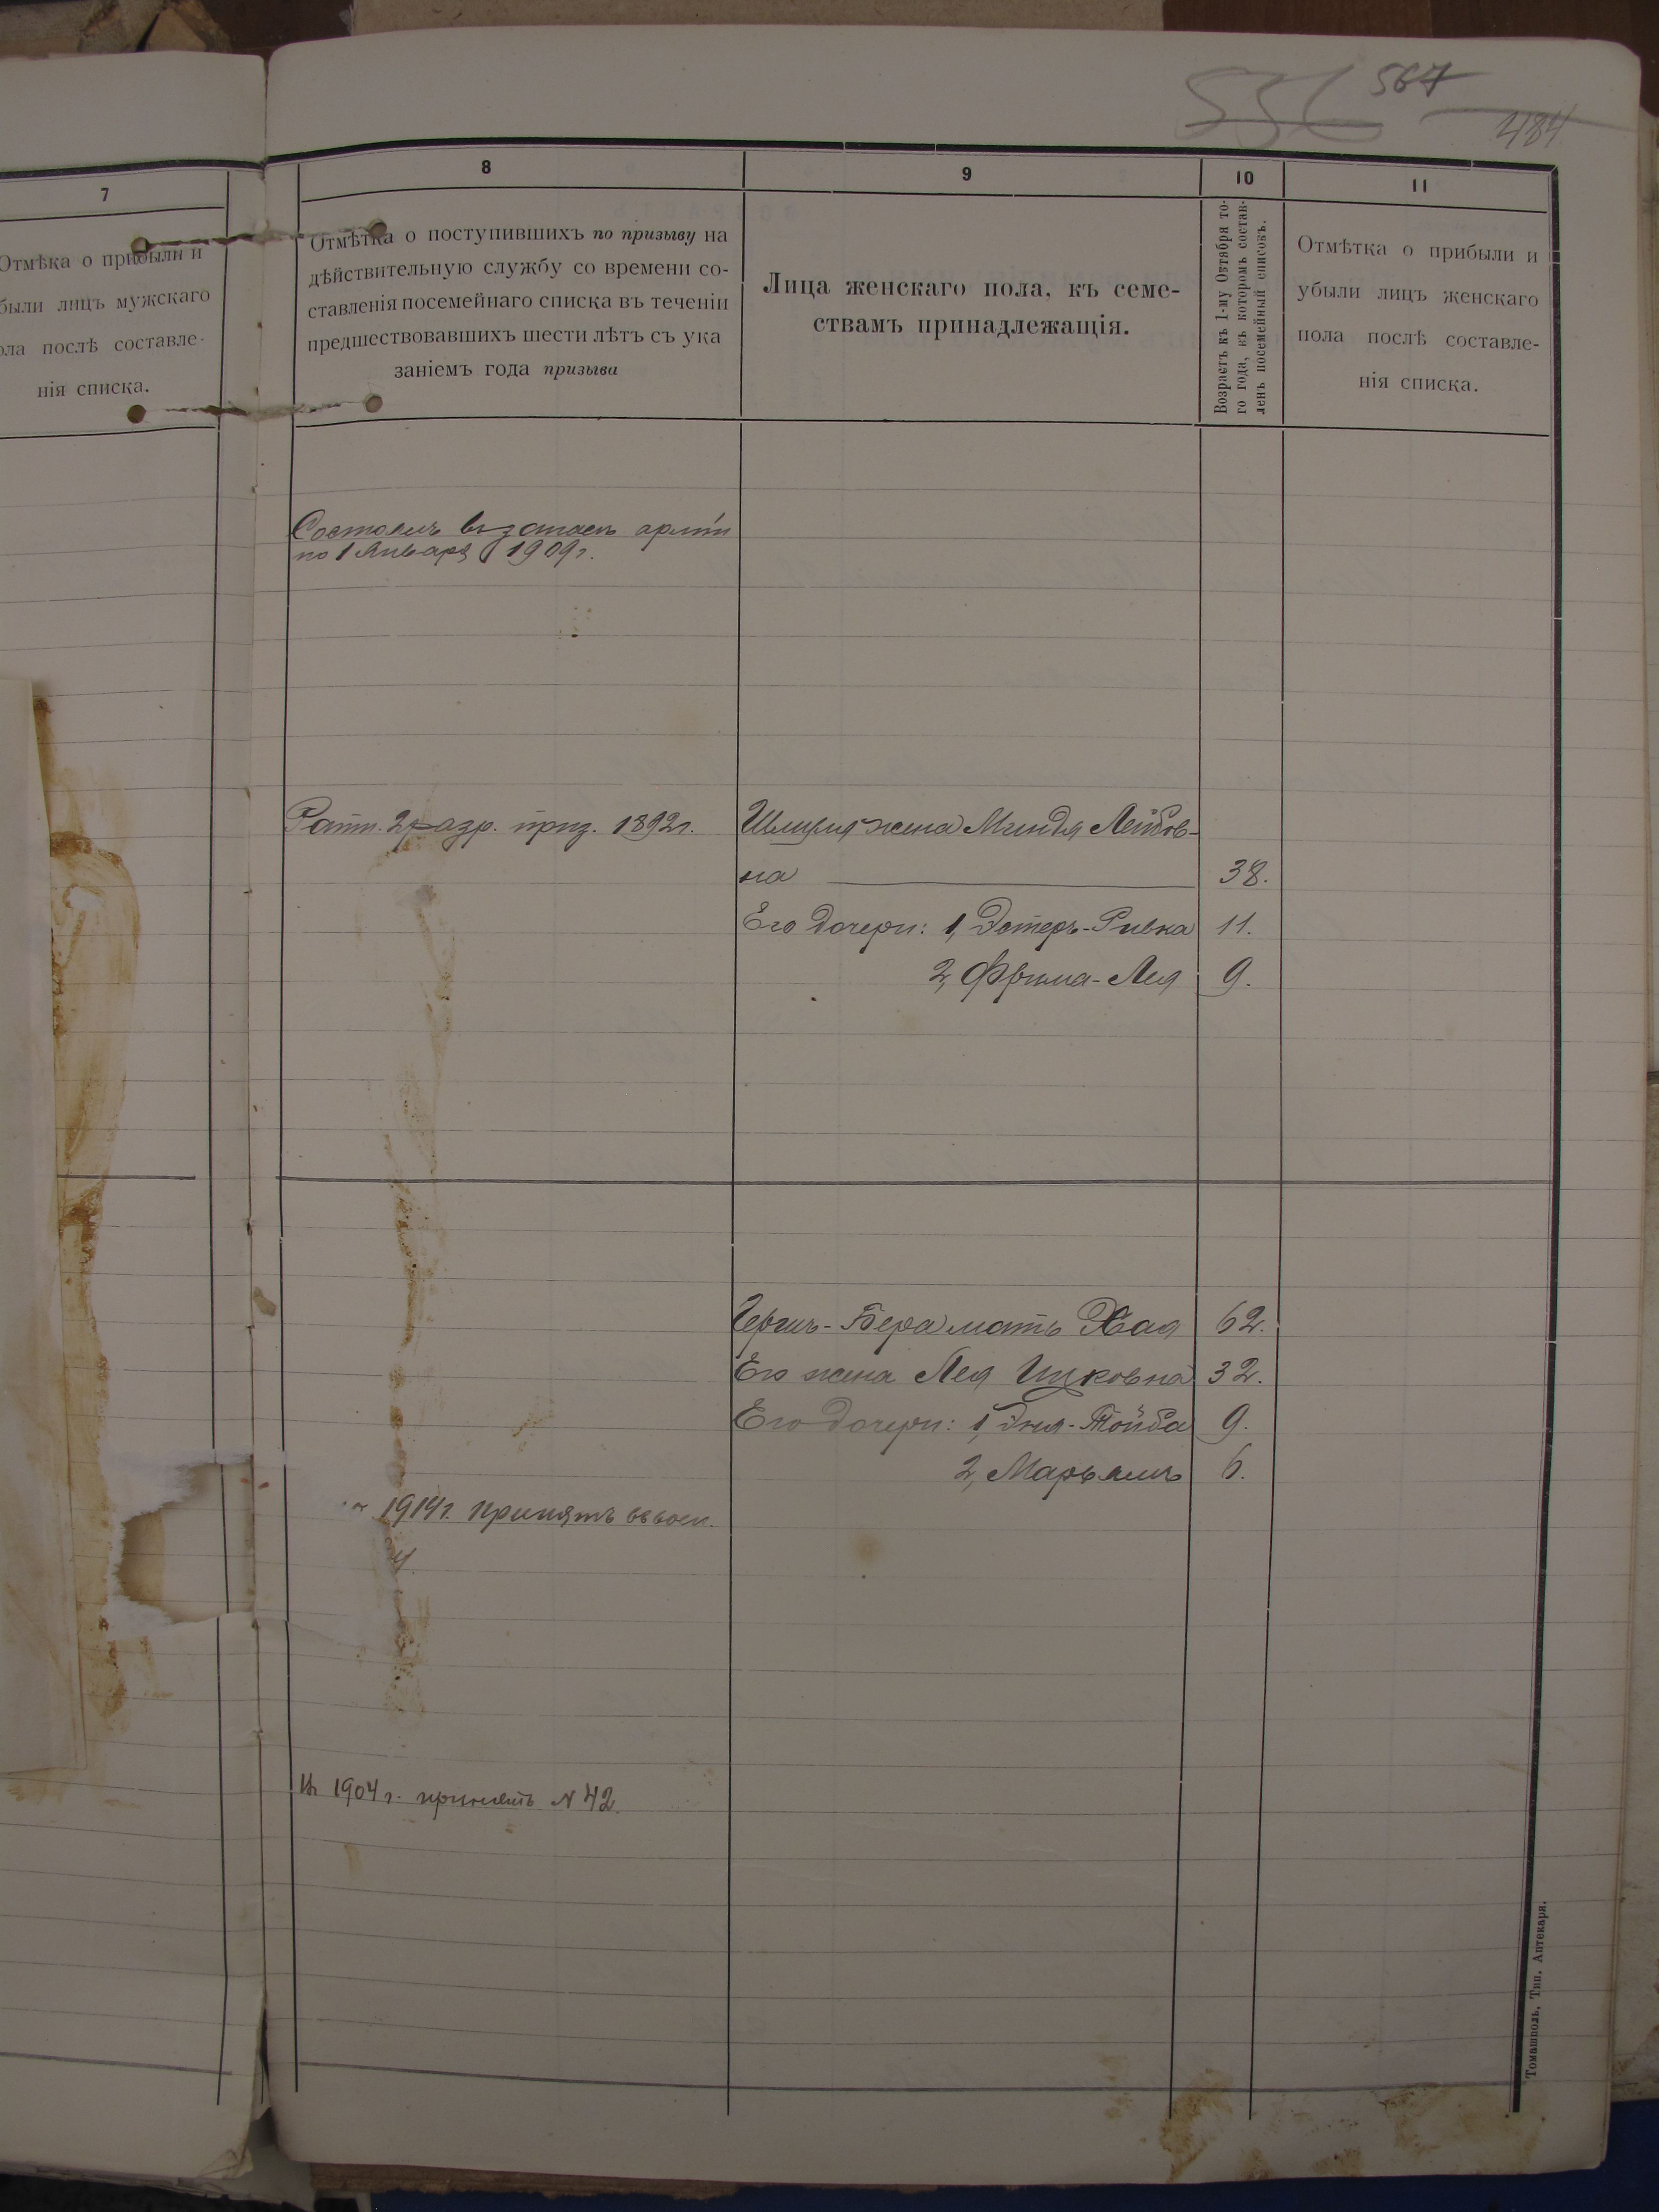 556 567
484
7
Отмѣка о прибыли и
были лицъ мужскаго
ола послѣ составле-
нія списка.
8
Отмѣтка о поступившихъ по призыву на
дѣйствительную службу со времени со-
ставленія посемейнаго списка въ теченіи
предшествовавшихъ шести лѣтъ съ ука
заніемъ года призыва
9
Лица женскаго пола, къ семе-
ствамъ принадлежащія.
10
Возрастъ къ 1-му Октября то-
го года, въ которомъ состав-
ленъ посемейный списокъ.
11
Отмѣтка о прибыли и
убыли лицъ женскаго
пола послѣ составле-
нія списка.
Состоитъ въ запасѣ арміи
по 1 Января 1909г.
Ратн. 2 разр. приз. 1892г.
жена Миндля Лейбов-
на 38.
Его дочери: 1, Эстеръ-Ривка 11.
2, Фрима-Лея 9.
Герша-Бера мать Хая 62.
Его жена Лея Ицковна 32.
Его дочери: 1, Эня-Тойба 9.
2, Марьямъ 6.
1914г. принятъ въ воен.
Въ 1904г. принятъ N 42.
Томашполь, Тип. Аптекаря.